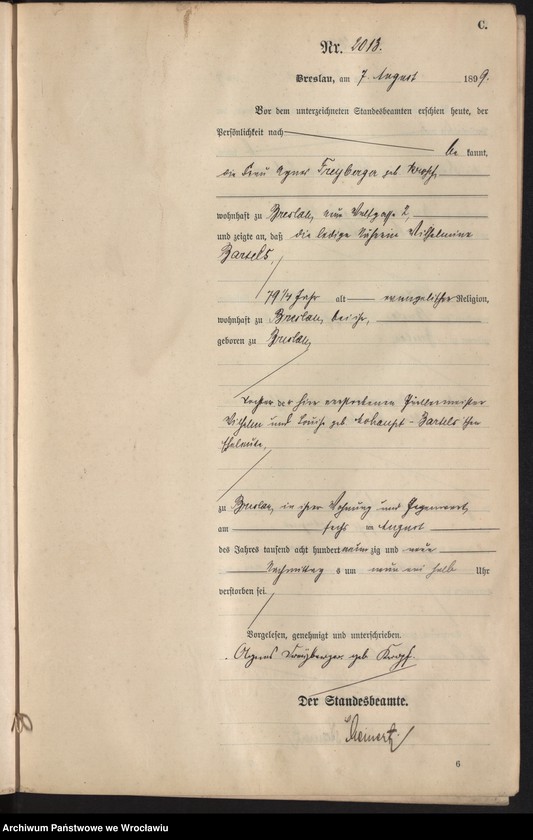 C.
Nr. 2013.
Breslau, am 7. August 1899.
Vor dem unterzeichneten Standesbeamten erschien heute, der
Persönlichkeit nach
be kannt,
die Frau Agnes Freyberger geb Kropf,
wohnhaft zu Breslau, 2,
und zeigte an, daß die ledige Näherin Wilhelmine
Bartels,
79 1/4 Jahr alt evangelischer Religion,
wohnhaft zu Breslau, bei ihr,
geboren zu Breslau,
Tochter der hier verstorbenen
Wilhelm und Louise geb - Bartels'schen
Eheleute,
zu Breslau, in ihrer Wohnung und Gegenwart,
am sechs ten August
des Jahres tausend acht hundert neun zig und neun
Nachmittag s um neun ein halb Uhr
verstorben sei.
Vorgelesen, genehmigt und unterschrieben.
Agnes Freyberger geb Kropf.
Der Standesbeamte.
6
Archiwum Państwowe we Wrocławiu